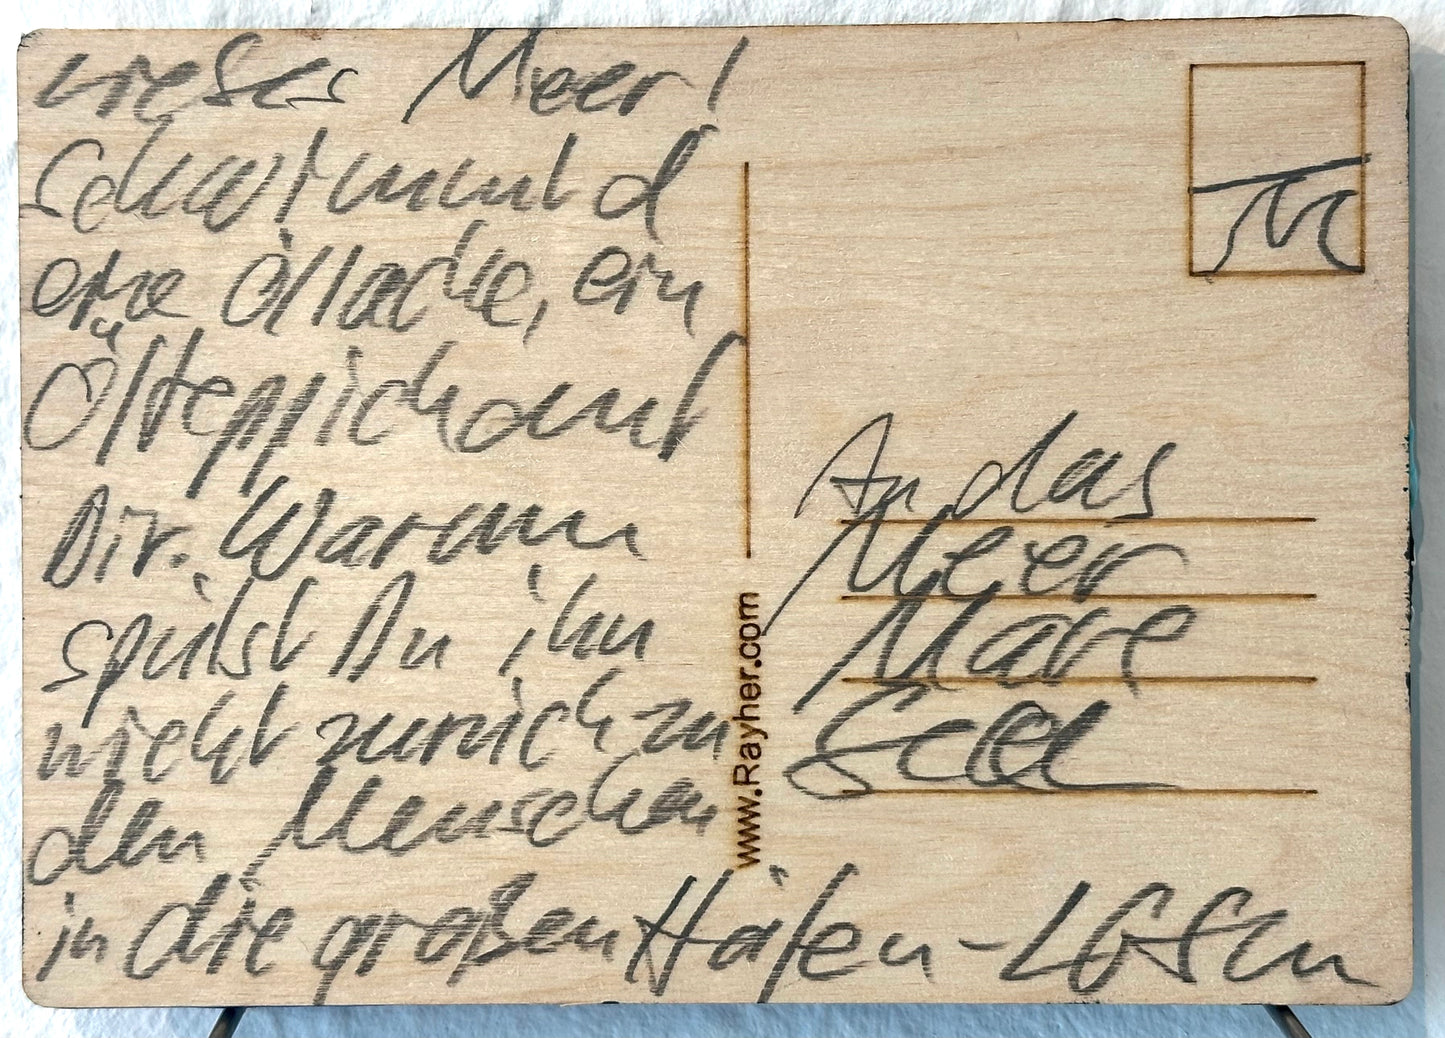 Liebes Meer!
Schwimmt d
eine Öllacke, ein
Ölteppich auf
Dir. Warum
spülst Du ihn
nicht zurück zu
den Menschen
in die großen Häfen -
An das
Meer
Mare
See
www.Rayher.com